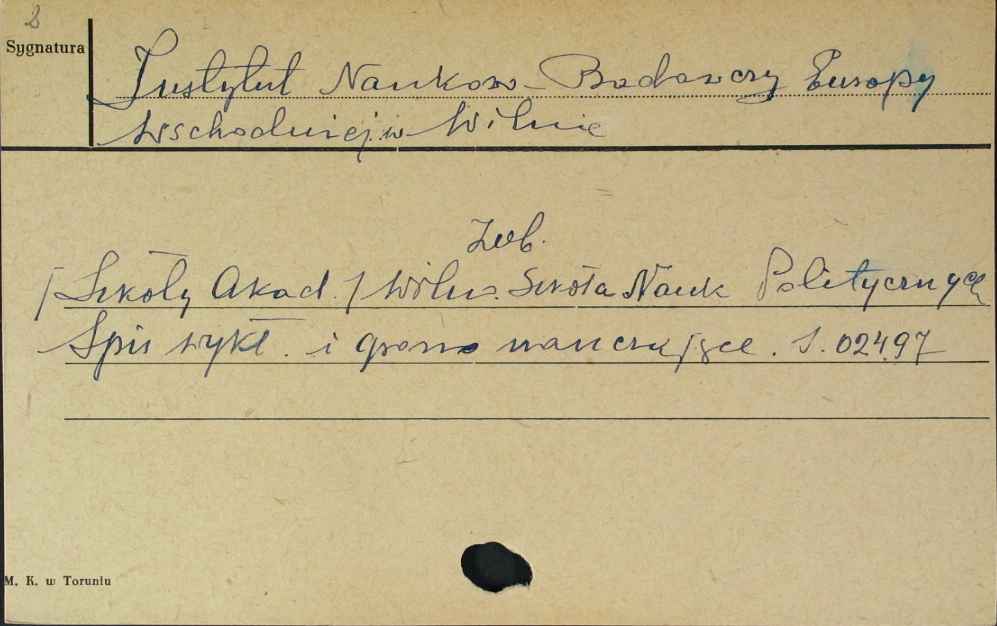 2
Sygnatura
Instytut Naukowo-Badawczy Europy
Wschodniej w Wilnie
Zob.
[Szkoły Akad.] Wilno. Szkoła Nauk Politycznych
Spis wykł. i grono nauczające. S. 02497
M. K. w Toruniu